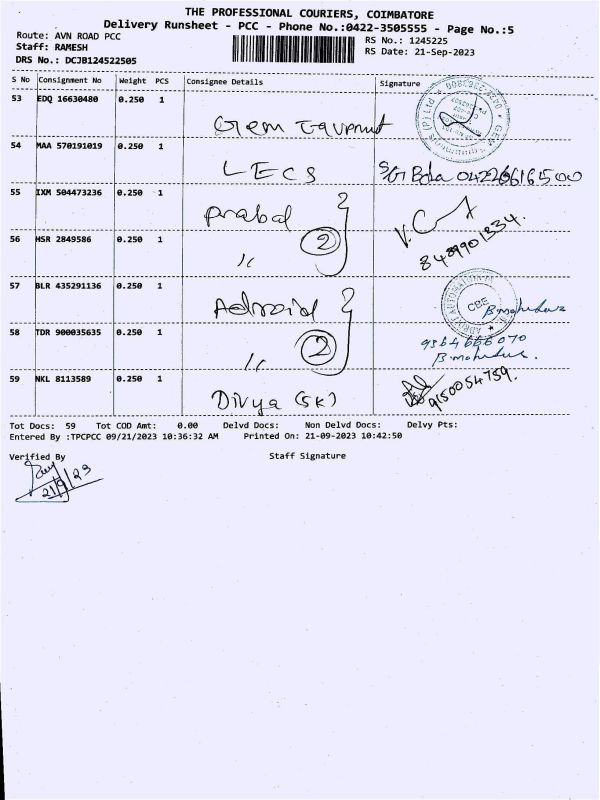 THE PROFESSIONAL COURIERS, COIMBATORE
Delivery Runsheet - PCC - Phone No.:0422-3505555 - Page No.:5
Route: AVN ROAD PCC
RS No.: 1245225
Staff: RAMESH
RS Date: 21-Sep-2023
DRS No.: DCJB124522505
S No Consignment No Weight PCS Consignee Details Signature
53 EDQ 16630480 0.250 1
Gem
54 MAA 570191019 0.250 1
LECS
55 IXM 504473236 0.250 1
Prabal
8489901334.
56 HSR 2849586 0.250 1
" 2
57 BLR 435291136 0.250 1
CBE
58 TDR 900035635 0.250 1
" 2
9364666070
59 NKL 8113589 0.250 1
Divya (SK)
9150054759.
Tot Docs: 59 Tot COD Amt: 0.00 Delvd Docs: Non Delvd Docs: Delvy Pts:
Entered By :TPCPCC 09/21/2023 10:36:32 AM Printed On: 21-09-2023 10:42:50
Verified By Staff Signature
21/9/23